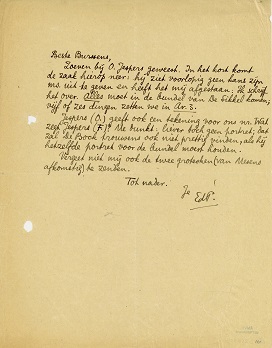 Beste Burssens,
Zoeven bij O. Jespers geweest. In het kort komt
de zaak hierop neer: hij ziet voorlopig geen kans zijn
ms uit te geven en heeft het mij afgestaan. Ik schrijf
het over. Alles moet in de bundel van De Sikkel komen,
vijf of zes dingen zetten we in Av. 3.
Jespers (O.) geeft ook een tekening voor ons nr. Wat
zegt Jespers (F.)? Me dunkt: liever toch geen portret; dat
zal De Bock trouwens ook niet prettig vinden, als hij
hetzelfde portret voor de bundel moest houden.
Vergeet niet mij ook de twee grotesken (van Mesens
afkomstig) te zenden.
Tot nader.
Je
EdP.